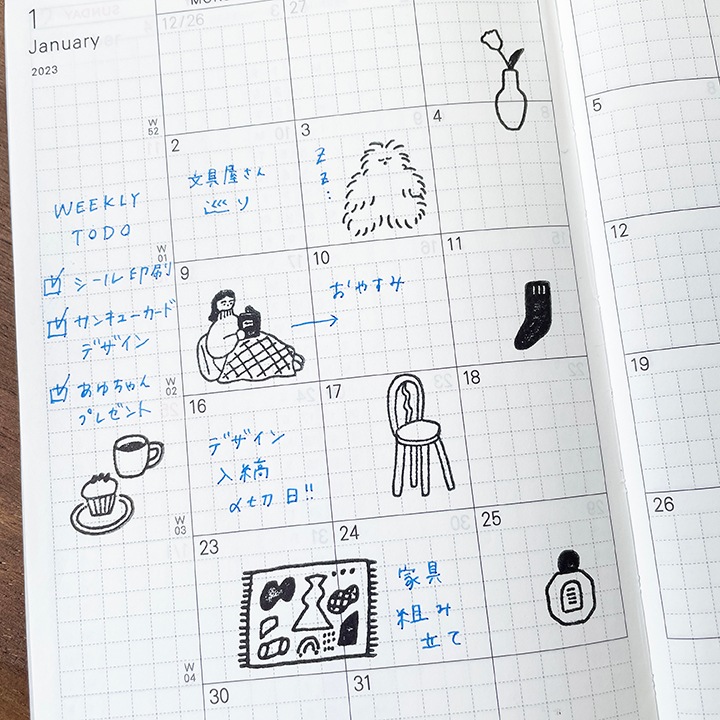 1
January
2023
12/26
27
W
52
2
3
4
5
文具屋さん
巡り
Z
Z
WEEKLY
TODO
シール印刷
サンキューカード
デザイン
あゆちゃん
プレゼント
W
01
9
10
11
12
おやすみ
W
02
16
17
18
19
デザイン
入稿
〆切日!!
W
03
23
24
25
26
家具
組み
立て
W
04
30
31